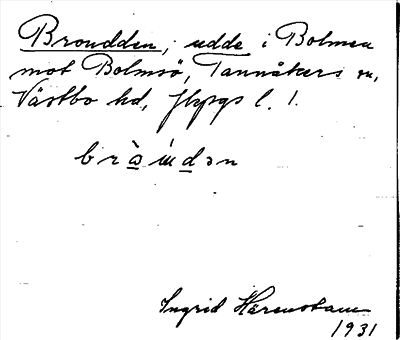 Broudden, udde i Bolmen
mot Bolmsö, Tannåkers sn,
Västbo hd, Jkpgs l. !
Ingrid Härenstam
1931